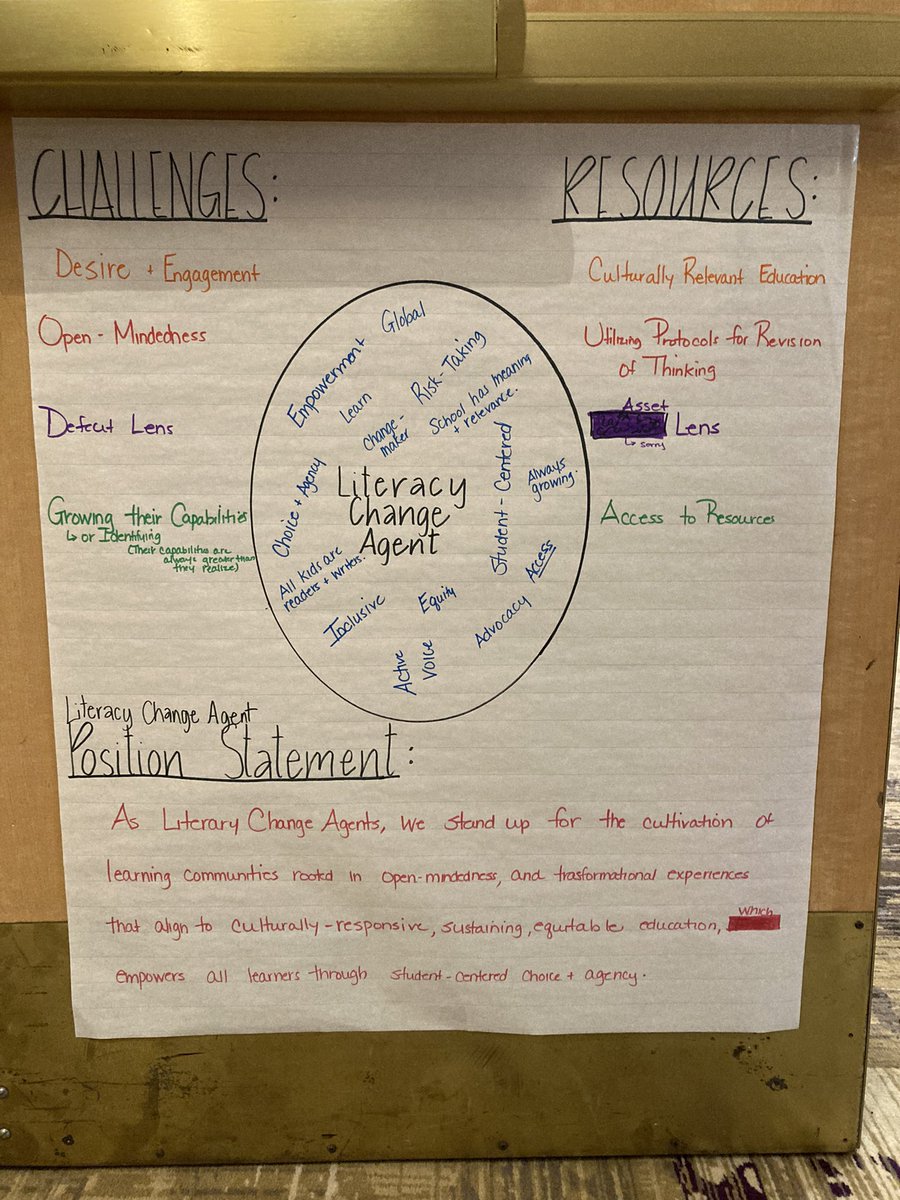 CHALLENGES:
Desire + Engagement
Open-Mindedness
Defecit Lens
Growing their Capabilities
↳ or Identifying
(Their capabilities are
always greater than
they realize)
RESOURCES:
Culturally Relevant Education
Utilizing Protocols for Revision
of Thinking
Asset
Lens
↳ sorry
Access to Resources
Global
Empowerment
Risk-Taking
Learn
School has meaning
+ relevance.
Change-
maker
Literacy
Change
Agent
Choice + Agency
Student-Centered
Always
growing.
All kids are
readers + writers.
Access
Inclusive
Equity
Advocacy
Active
Voice
Literacy Change Agent
Position Statement:
As Literary Change Agents, we stand up for the cultivation of
learning communities rooted in open-mindedness, and trasformational experiences
that align to culturally-responsive, sustaining, equitable education, which
empowers all learners through student-centered choice + agency.